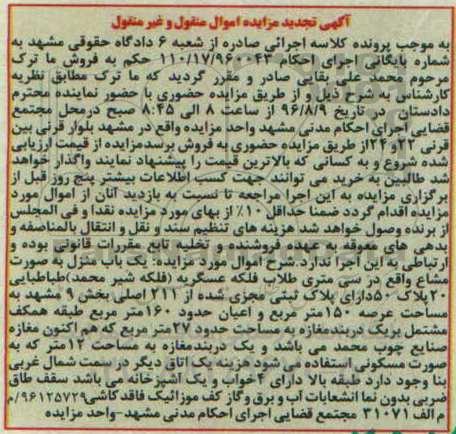 آگهی تجدید مزایده اموال منقول و غیر منقول
به موجب پرونده کلاسه اجرائی صادره از شعبه ۶ دادگاه حقوقی مشهد به
شماره بایگانی اجرای احکام ۱۱۰/۱۷/۹۶۰۰۴۳ حکم به فروش ما ترک
مرحوم محمد علی بقایی صادر و مقرر گردید که ما ترک مطابق نظریه
کارشناس به شرح ذیل و از طریق مزایده حضوری با حضور نماینده محترم
دادستان در تاریخ ۹۶/۸/۹ از ساعت ۸ الی ۸:۴۵ صبح درمحل مجتمع
قضایی اجرای احکام مدنی مشهد واحد مزایده واقع در مشهد بلوار قرنی بین
قرنی ۲۲و۲۴از طریق مزایده حضوری به فروش برسدمزایده از قیمت ارزیابی
شده شروع و به کسانی که بالاترین قیمت را پیشنهاد نمایند واگذار خواهد
شد طالبین به خرید می توانند جهت کسب اطلاعات بیشتر پنج روز قبل از
برگزاری مزایده به این اجرا مراجعه تا نسبت به بازدید آنان از اموال مورد
مزایده اقدام گردد ضمنا حداقل ۱۰٪ از بهای مورد مزایده نقدا و فی المجلس
از برنده وصول خواهد شد هزینه های تنظیم سند و نقل و انتقال بالمناصفه و
بدهی های معوقه به عهده فروشنده و تخلیه تابع مقررات قانونی بوده و
ارتباطی به این اجرا ندارد.شرح اموال مورد مزایده: یک باب منزل به صورت
مشاع واقع در سی متری طلاب فلکه عسگریه (فلکه شیر محمد)طباطبایی
۲۰پلاک ۵۰دارای پلاک ثبتی مجزی شده از ۲۱۱ اصلی بخش ۹ مشهد به
مساحت عرصه ۱۵۰متر مربع و اعیان حدود ۱۶۰متر مربع طبقه همکف
مشتمل بریک دربندمغازه به مساحت حدود ۲۷متر مربع که هم اکنون مغازه
صنایع چوب محمد می باشد و یک دربندمغازه به مساحت ۱۲متر که به
صورت مسکونی استفاده می شود هزینه یک اتاق دیگر در سمت شمال غربی
بنا وجود دارد طبقه بالا دارای ۴خواب و یک آشپزخانه می باشد سقف طاق
ضربی بدون نما انشعابات آب و برق وگاز کف موزائیک فاقد کاشی۹۶۱۲۵۷۲۹/م
م الف ۳۱۰۷۱ مجتمع قضایی اجرای احکام مدنی مشهد-واحد مزایده